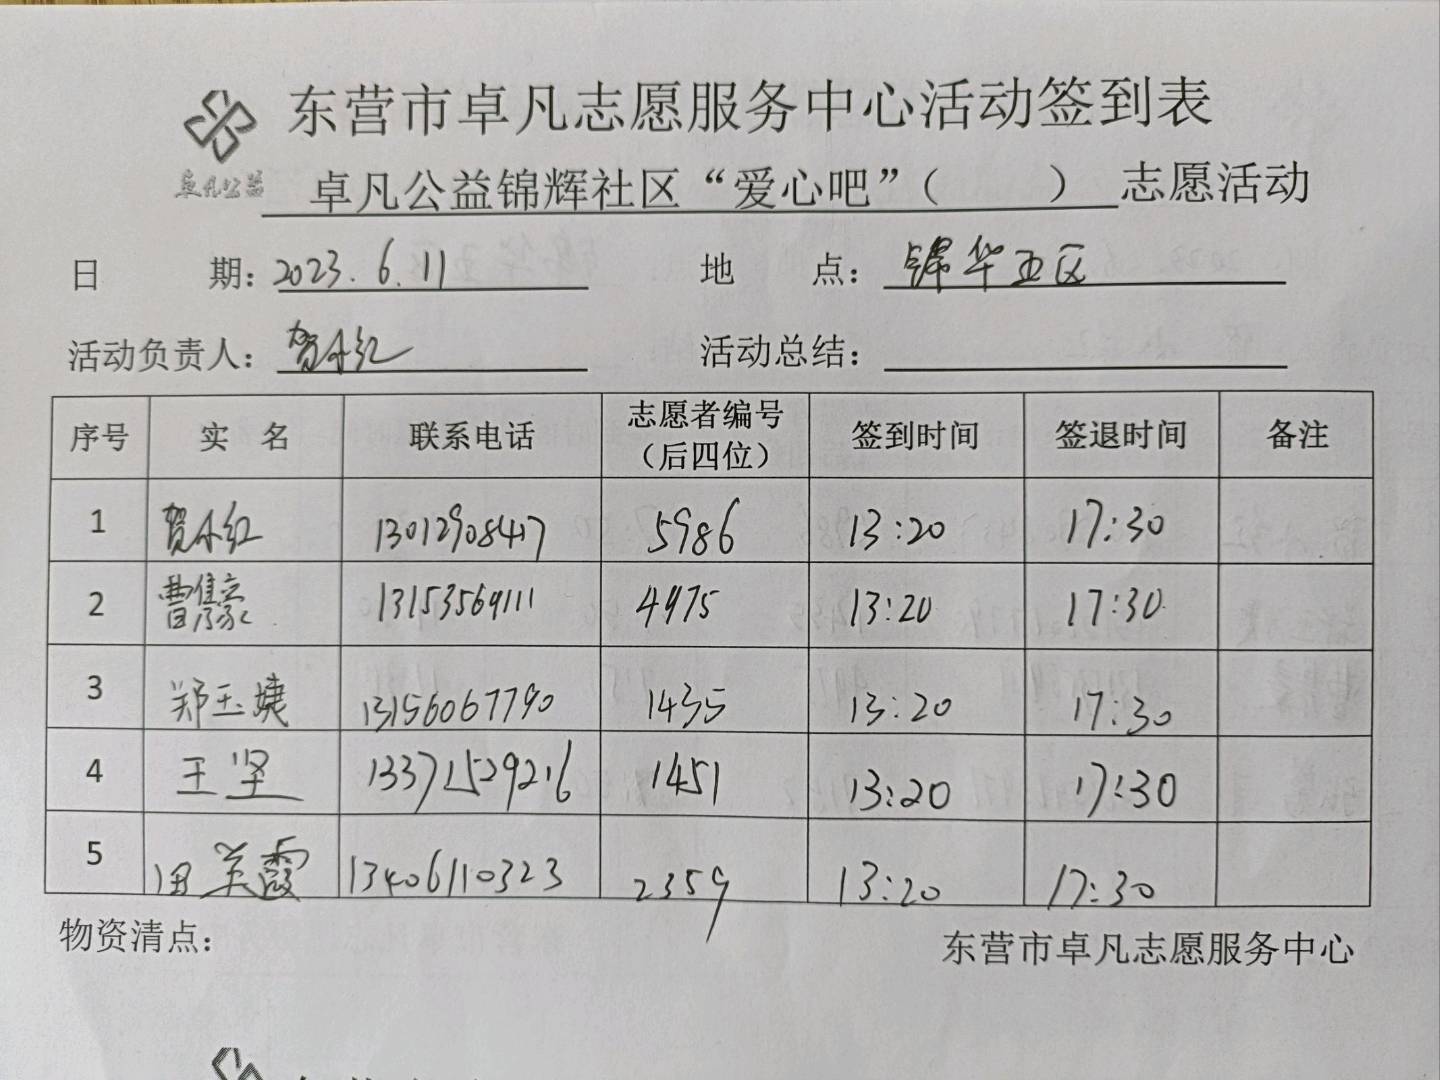 东营市卓凡志愿服务中心活动签到表
卓凡公益
卓凡公益锦辉社区“爱心吧”（　　）志愿活动
日　期：2023.6.11　地　点：锦华五区
活动负责人：贺小红　活动总结：
序号　实　名　联系电话　志愿者编号（后四位）　签到时间　签退时间　备注
1　贺小红　13012908417　5986　13:20　17:30
2　曹　13153569111　4975　13:20　17:30
3　郑玉婕　13156067790　1435　13:20　17:30
4　王坚　13371529216　1451　13:20　17:30
5　田美霞　13406110323　2359　13:20　17:30
物资清点：　东营市卓凡志愿服务中心